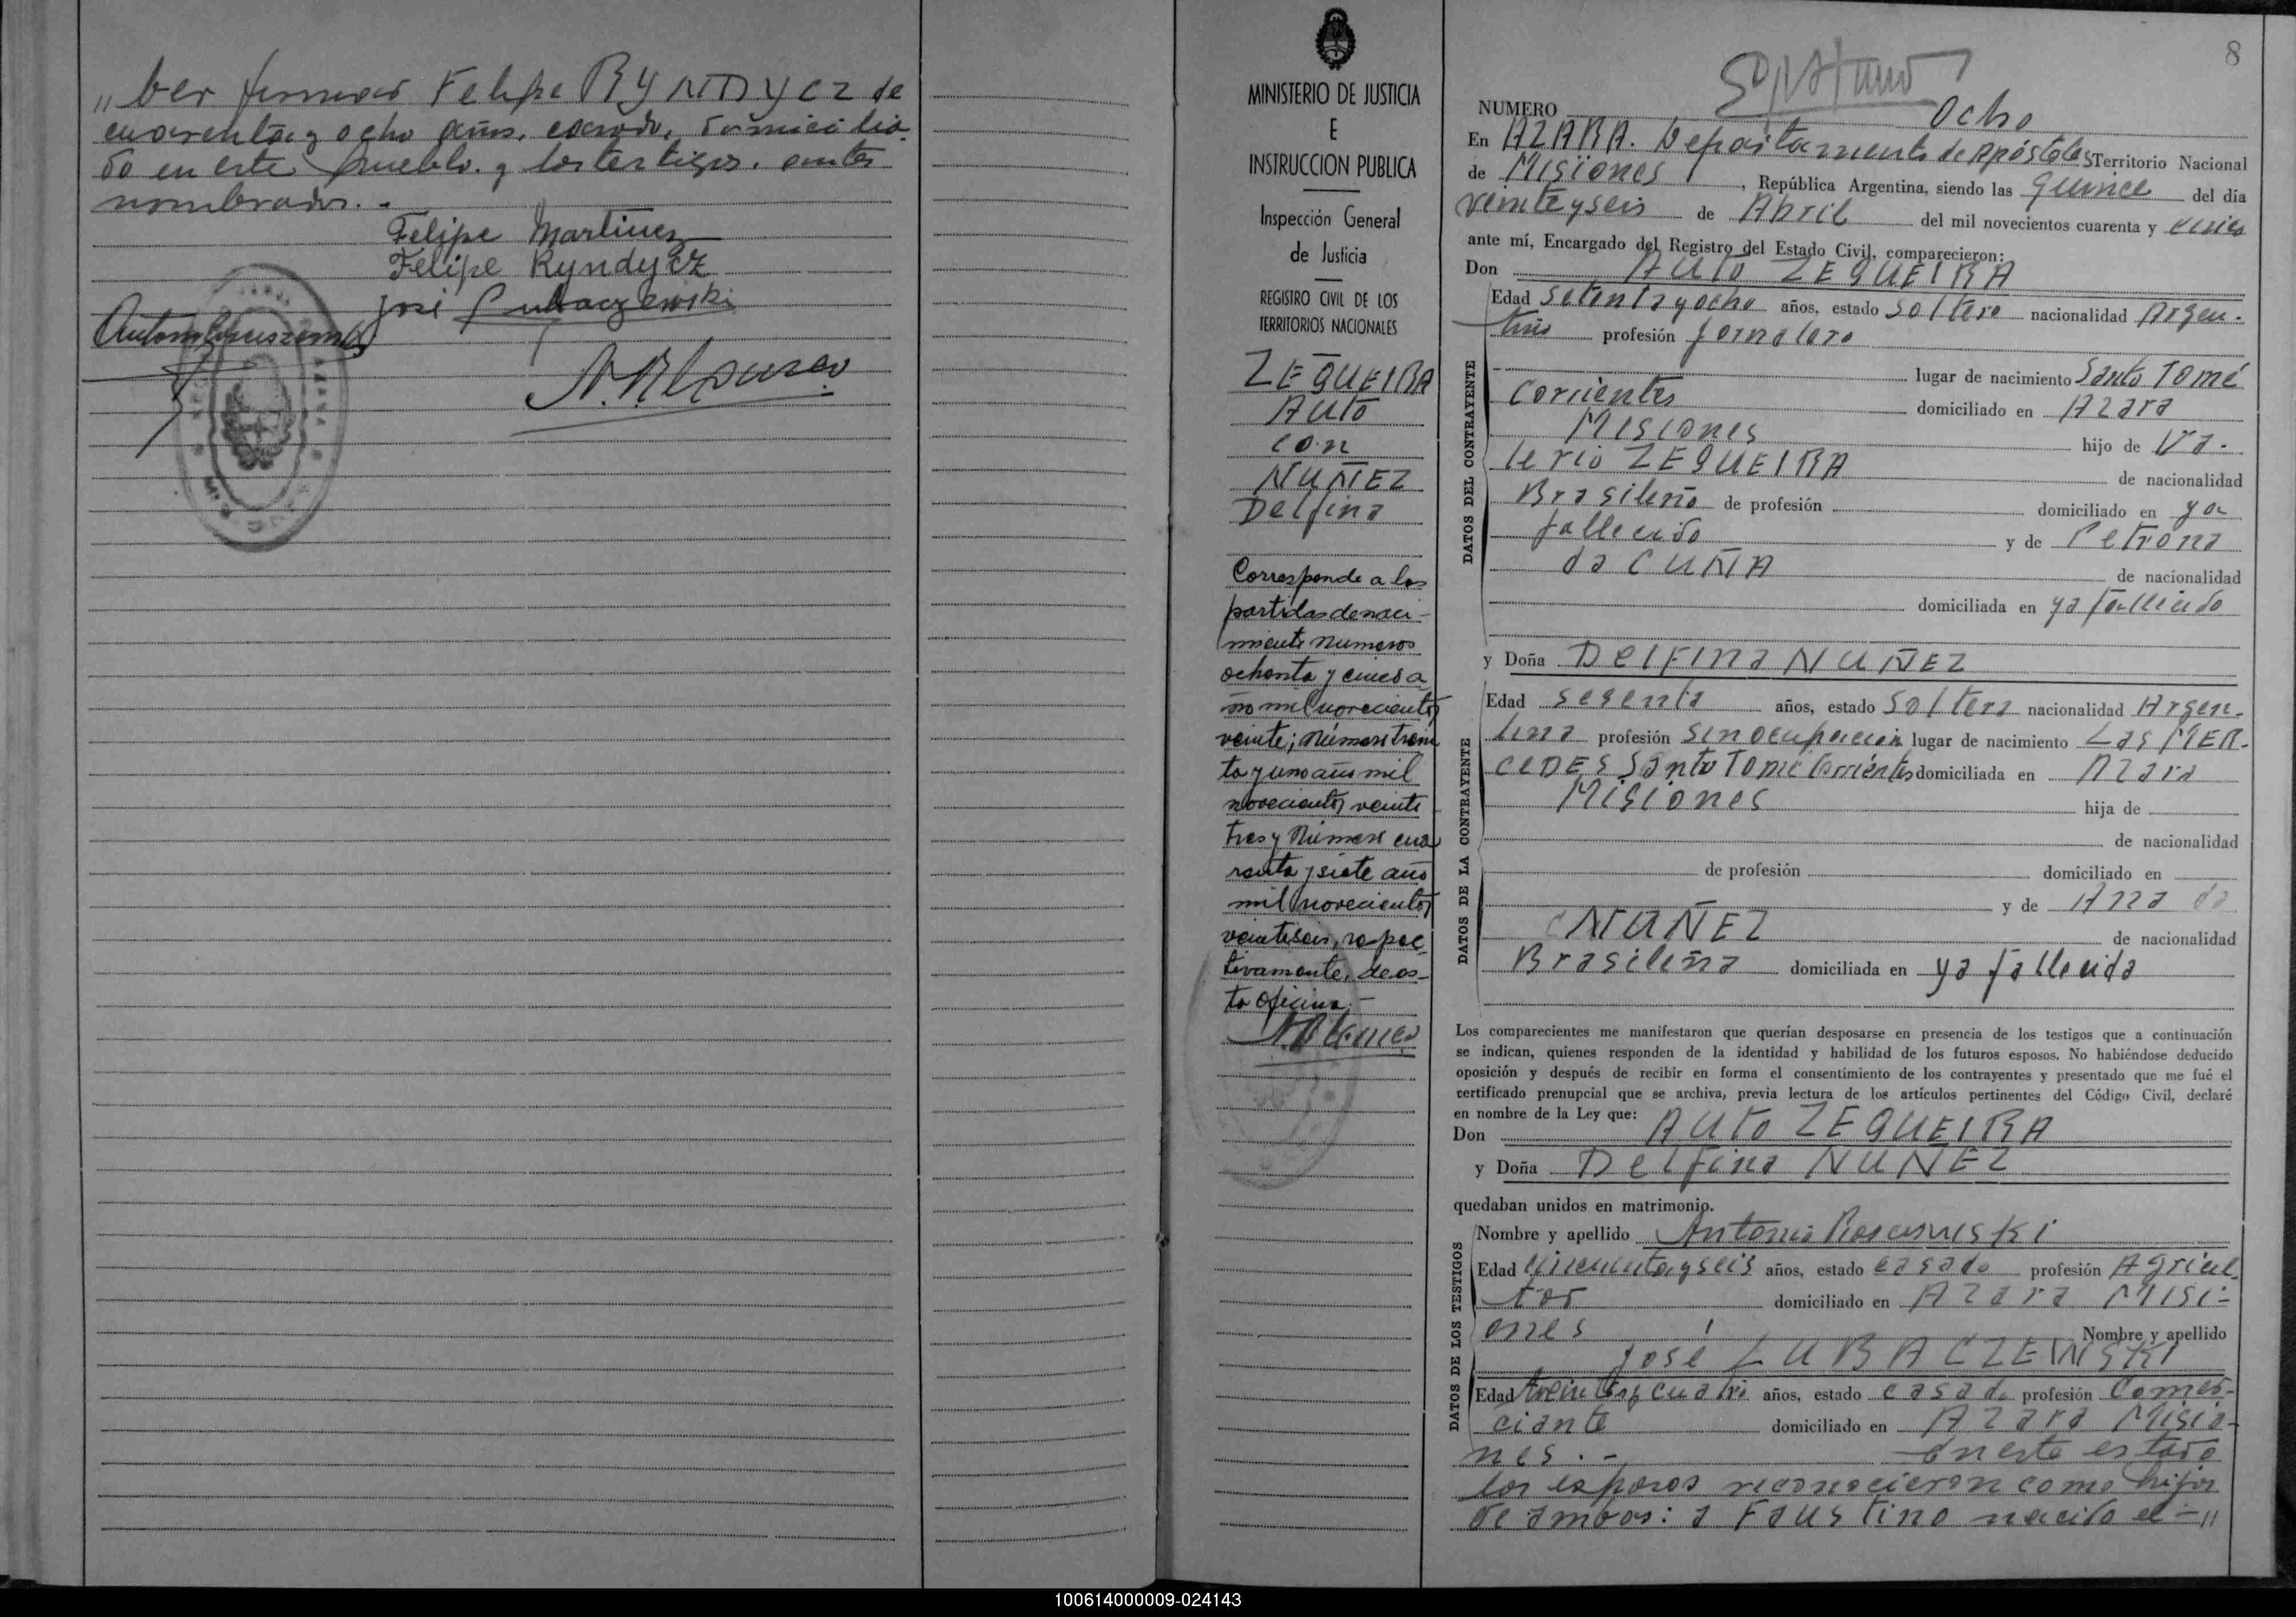 „ ber firmar Felipe RYNDYCZ de
cuarenta y ocho años, casado, domicilia-
do en este pueblo. y los testigos. antes
nombrados. -
Felipe Martinez
Felipe Ryndycz
José Lubaczewski
8
MINISTERIO DE JUSTICIA
E
INSTRUCCION PUBLICA
Inspección General
de Justicia
REGISTRO CIVIL DE LOS
TERRITORIOS NACIONALES
ZEQUEIRA
Auto
con
NUÑEZ
Delfina
Corresponde a las
partidas de naci-
miento numeros
ochenta y cinco a
ño mil novecientos
veinte; número trein
ta y uno año mil
novecientos veinte
tres y número cua
renta y siete año
mil novecientos
veinteseis, respec
tivamente, de es-
ta oficina.-
NUMERO Ocho
En AZARA. Departamento de Apóstoles Territorio Nacional
de Misiones, República Argentina, siendo las quince del día
veinte y seis de Abril del mil novecientos cuarenta y cinco
ante mí, Encargado del Registro del Estado Civil, comparecieron:
Don Auto ZEQUEIRA
DATOS DEL CONTRAYENTE
Edad setenta y ocho años, estado soltero nacionalidad Argen-
tino profesión jornalero
lugar de nacimiento Santo Tomé
Corrientes domiciliado en Azara
Misiones hijo de Va-
lerio ZEQUEIRA de nacionalidad
Brasileño de profesión domiciliado en ya
fallecido y de Petrona
da CUÑA de nacionalidad
domiciliada en ya fallecido
y Doña Delfina NUÑEZ
DATOS DE LA CONTRAYENTE
Edad sesenta años, estado soltera nacionalidad Argen-
tina profesión sin ocupación lugar de nacimiento Las MER-
CEDES Santo Tomé Corrientes domiciliada en Azara
Misiones hija de
de nacionalidad
de profesión domiciliado en
y de Ana da
NUÑEZ de nacionalidad
Brasileña domiciliada en ya fallecida
Los comparecientes me manifestaron que querían desposarse en presencia de los testigos que a continuación
se indican, quienes responden de la identidad y habilidad de los futuros esposos. No habiéndose deducido
oposición y después de recibir en forma el consentimiento de los contrayentes y presentado que me fué el
certificado prenupcial que se archiva, previa lectura de los artículos pertinentes del Código Civil, declaré
en nombre de la Ley que:
Don Auto ZEQUEIRA
y Doña Delfina NUÑEZ
quedaban unidos en matrimonio.
DATOS DE LOS TESTIGOS
Nombre y apellido Antonio
Edad cincuenta y seis años, estado casado profesión Agricul-
tor domiciliado en Azara Misi-
ones Nombre y apellido
José LUBACZEWSKI
Edad treinta y cuatro años, estado casado profesión Comer-
ciante domiciliado en Azara Misio-
nes.- En este estado
los esposos reconocieron como hijos
de ambos: a Faustino nacido el -„
100614000009-024143